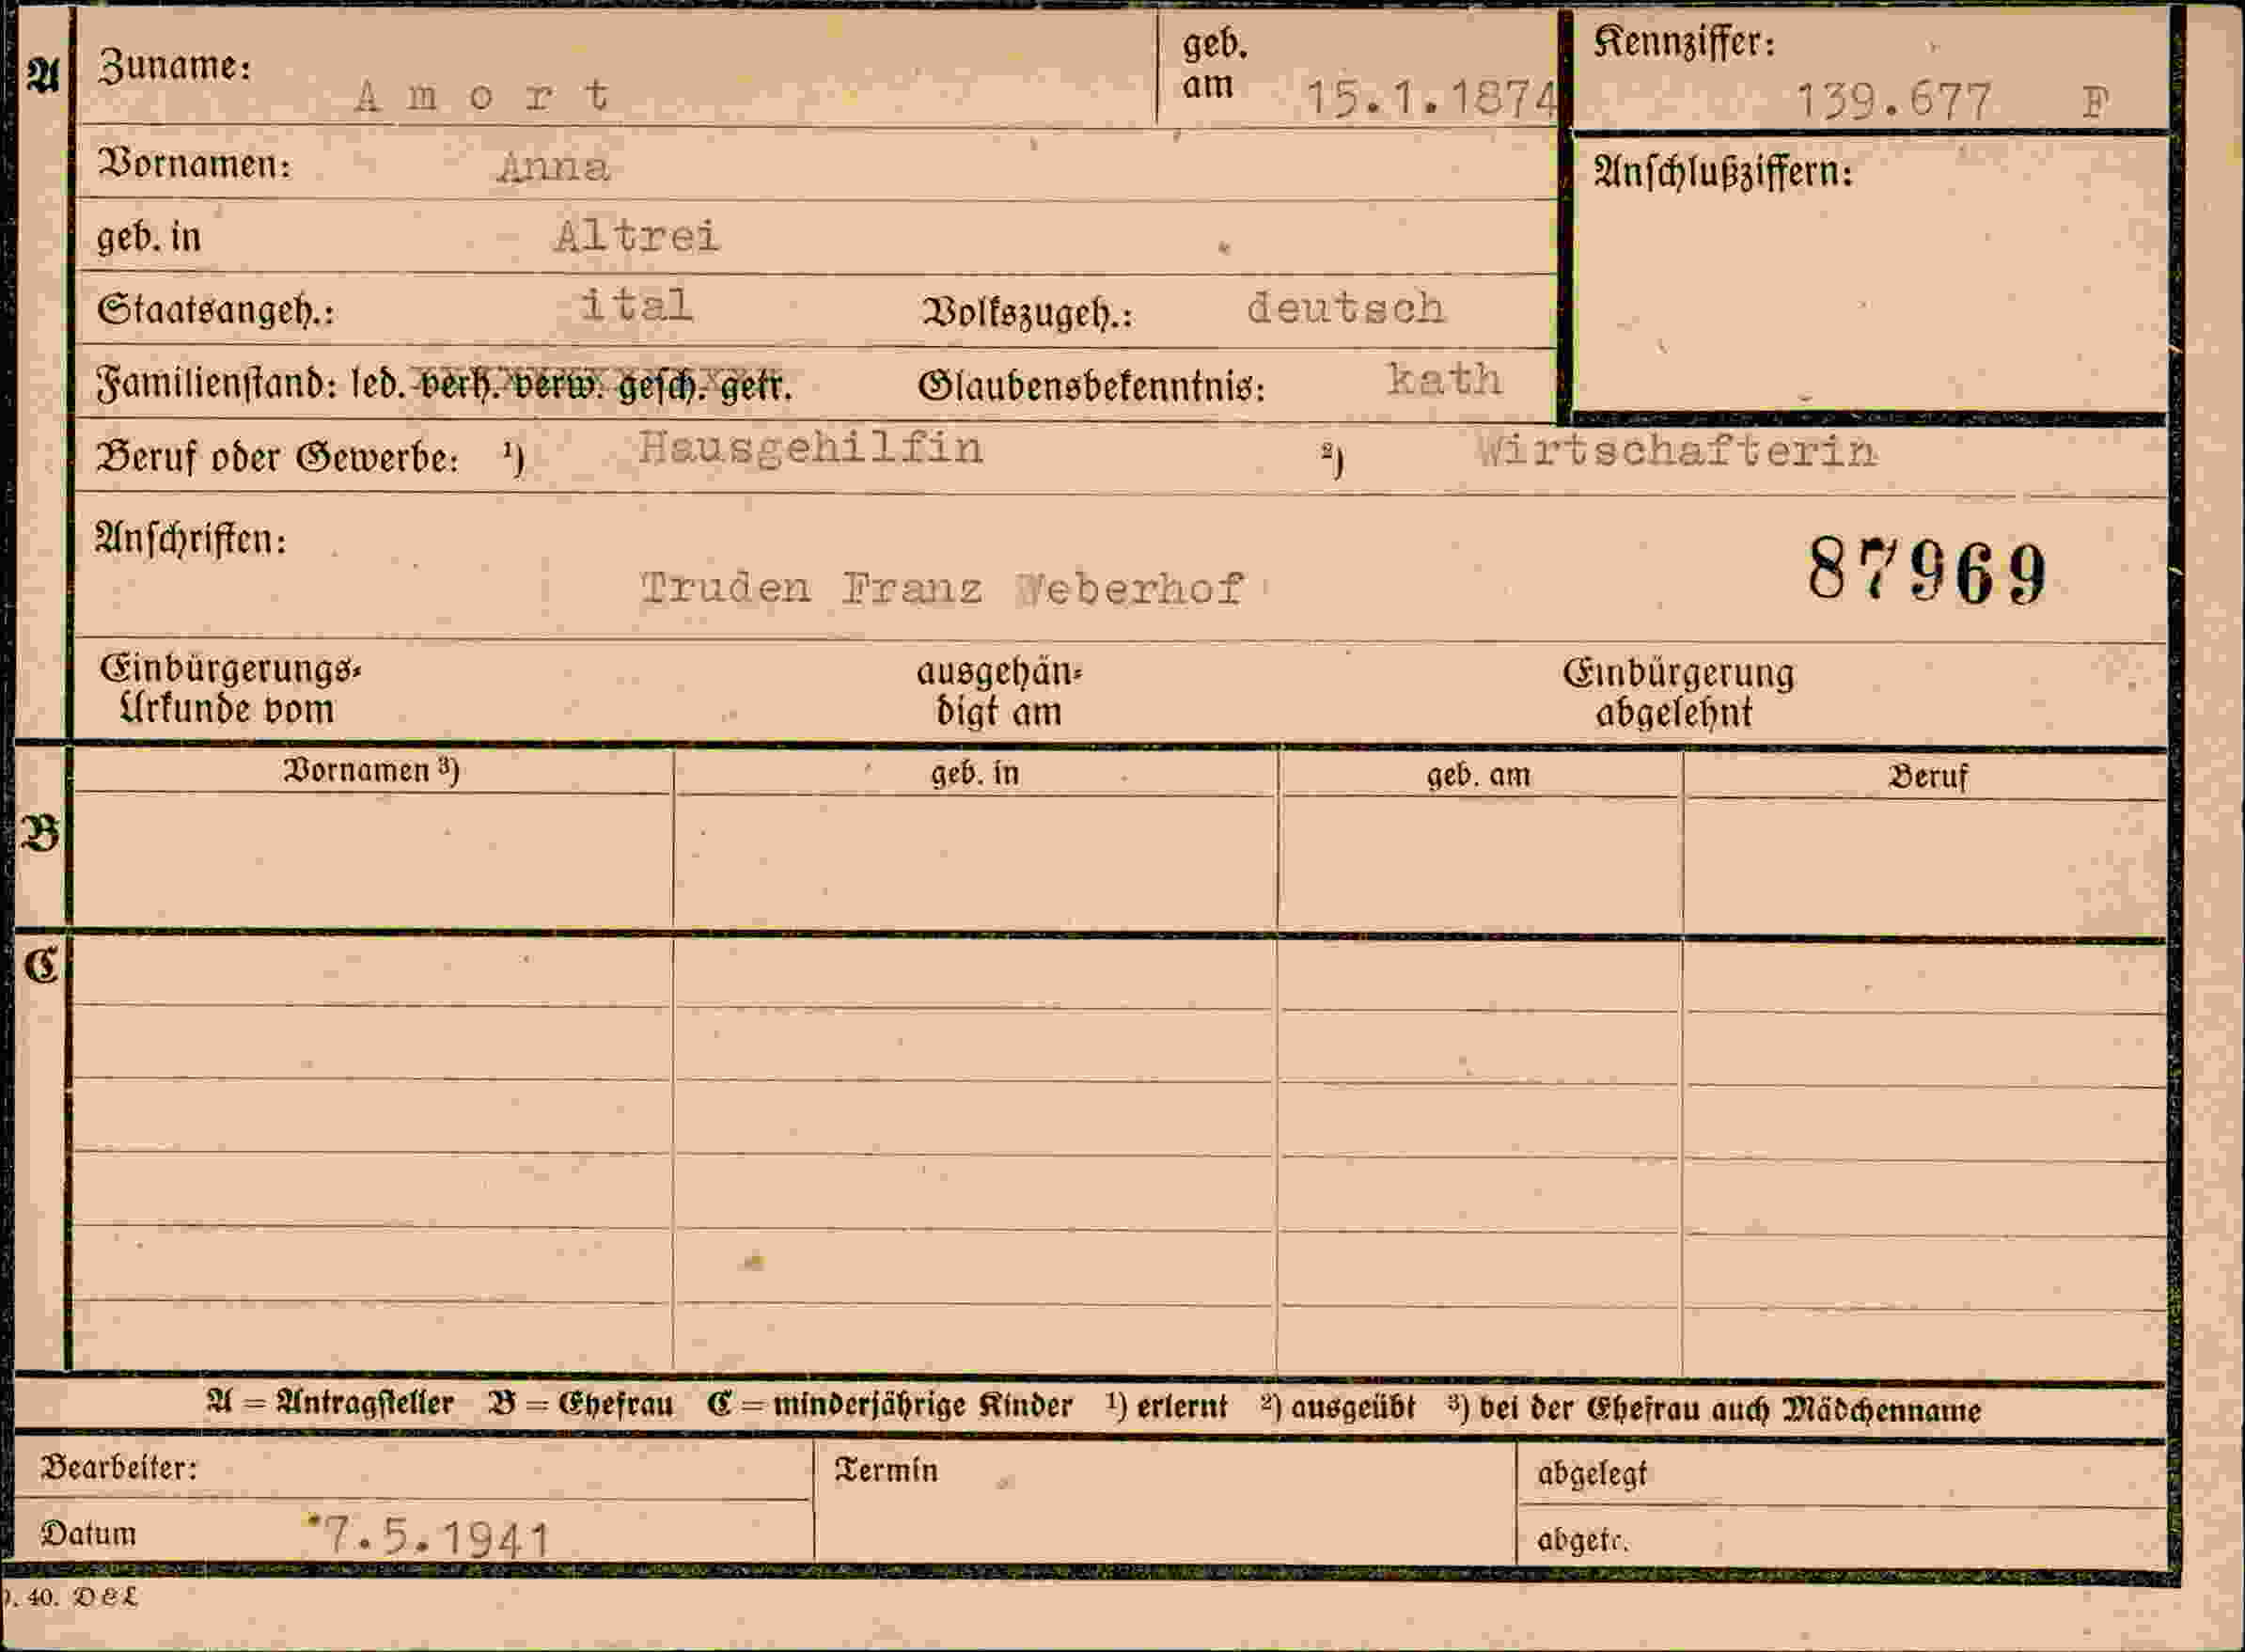 A Zuname: A m o r t geb. am 15.1.1874 Kennziffer: 139.677 F
Vornamen: Anna Anschlußziffern:
geb. in Altrei
Staatsangeh.: ital Volkszugeh.: deutsch
Familienstand: led. verh. verw. gesch. getr. Glaubensbekenntnis: kath
Beruf oder Gewerbe: ¹) Hausgehilfin ²) Wirtschafterin
Anschriften: 87969
Truden Franz Weberhof
Einbürgerungs- ausgehän- Einbürgerung
Urkunde vom digt am abgelehnt
Vornamen ³) geb. in geb. am Beruf
B
C
A = Antragsteller B = Ehefrau C = minderjährige Kinder ¹) erlernt ²) ausgeübt ³) bei der Ehefrau auch Mädchenname
Bearbeiter: Termin abgelegt
Datum 7.5.1941 abgetr.
40. DEL